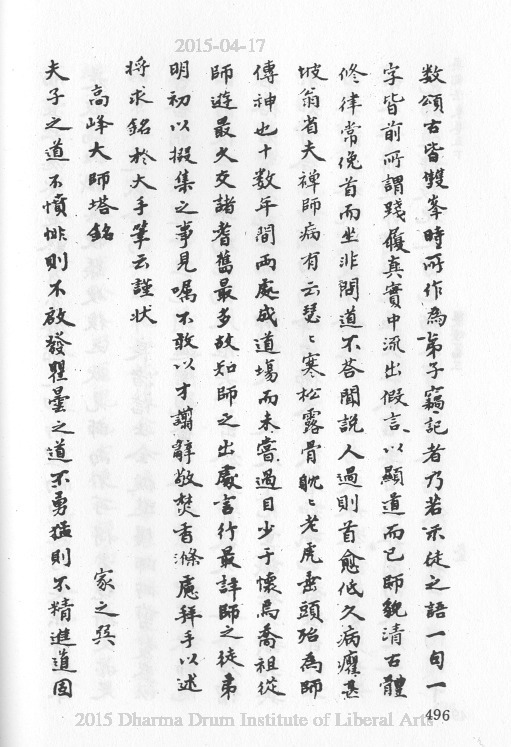 2015-04-17
数頌古皆雙峯時所作為弟子竊記者乃若示徒之語一句一
字皆前所謂踐履真實中流出假言以顯道而已師貌清古體
修律常俛首而坐非問道不荅聞說人過則首愈低久病癯甚
坡翁省夫禪師病有云瑟〻寒松露骨眈〻老虎垂頭殆為師
傳神也十數年間兩處成道場而未嘗過目少于懷焉喬祖從
師遊最久交諸耆舊最多故知師之出處言行最詳師之徒弟
明初以掇集之事見囑不敢以才謭辭敬焚香滌慮拜手以述
将求銘於大手筆云謹状
高峰大師塔銘
家之巽
夫子之道不憤悱則不啟發瞿曇之道不勇猛則不精進道固
496
2015 Dharma Drum Institute of Liberal Arts